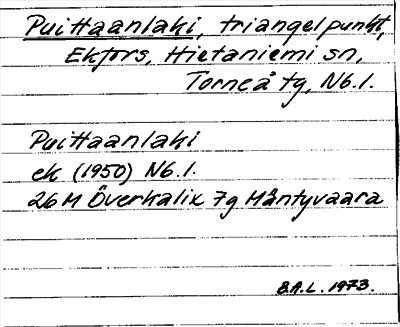 Puittaanlaki, triangelpunkt,
Ekfors, Hietaniemi sn,
Torneå tg, Nb.l.
Puittaanlaki
ek (1950) Nb.l.
26M Överkalix 7g Mäntyvaara
B.A.L. 1973.